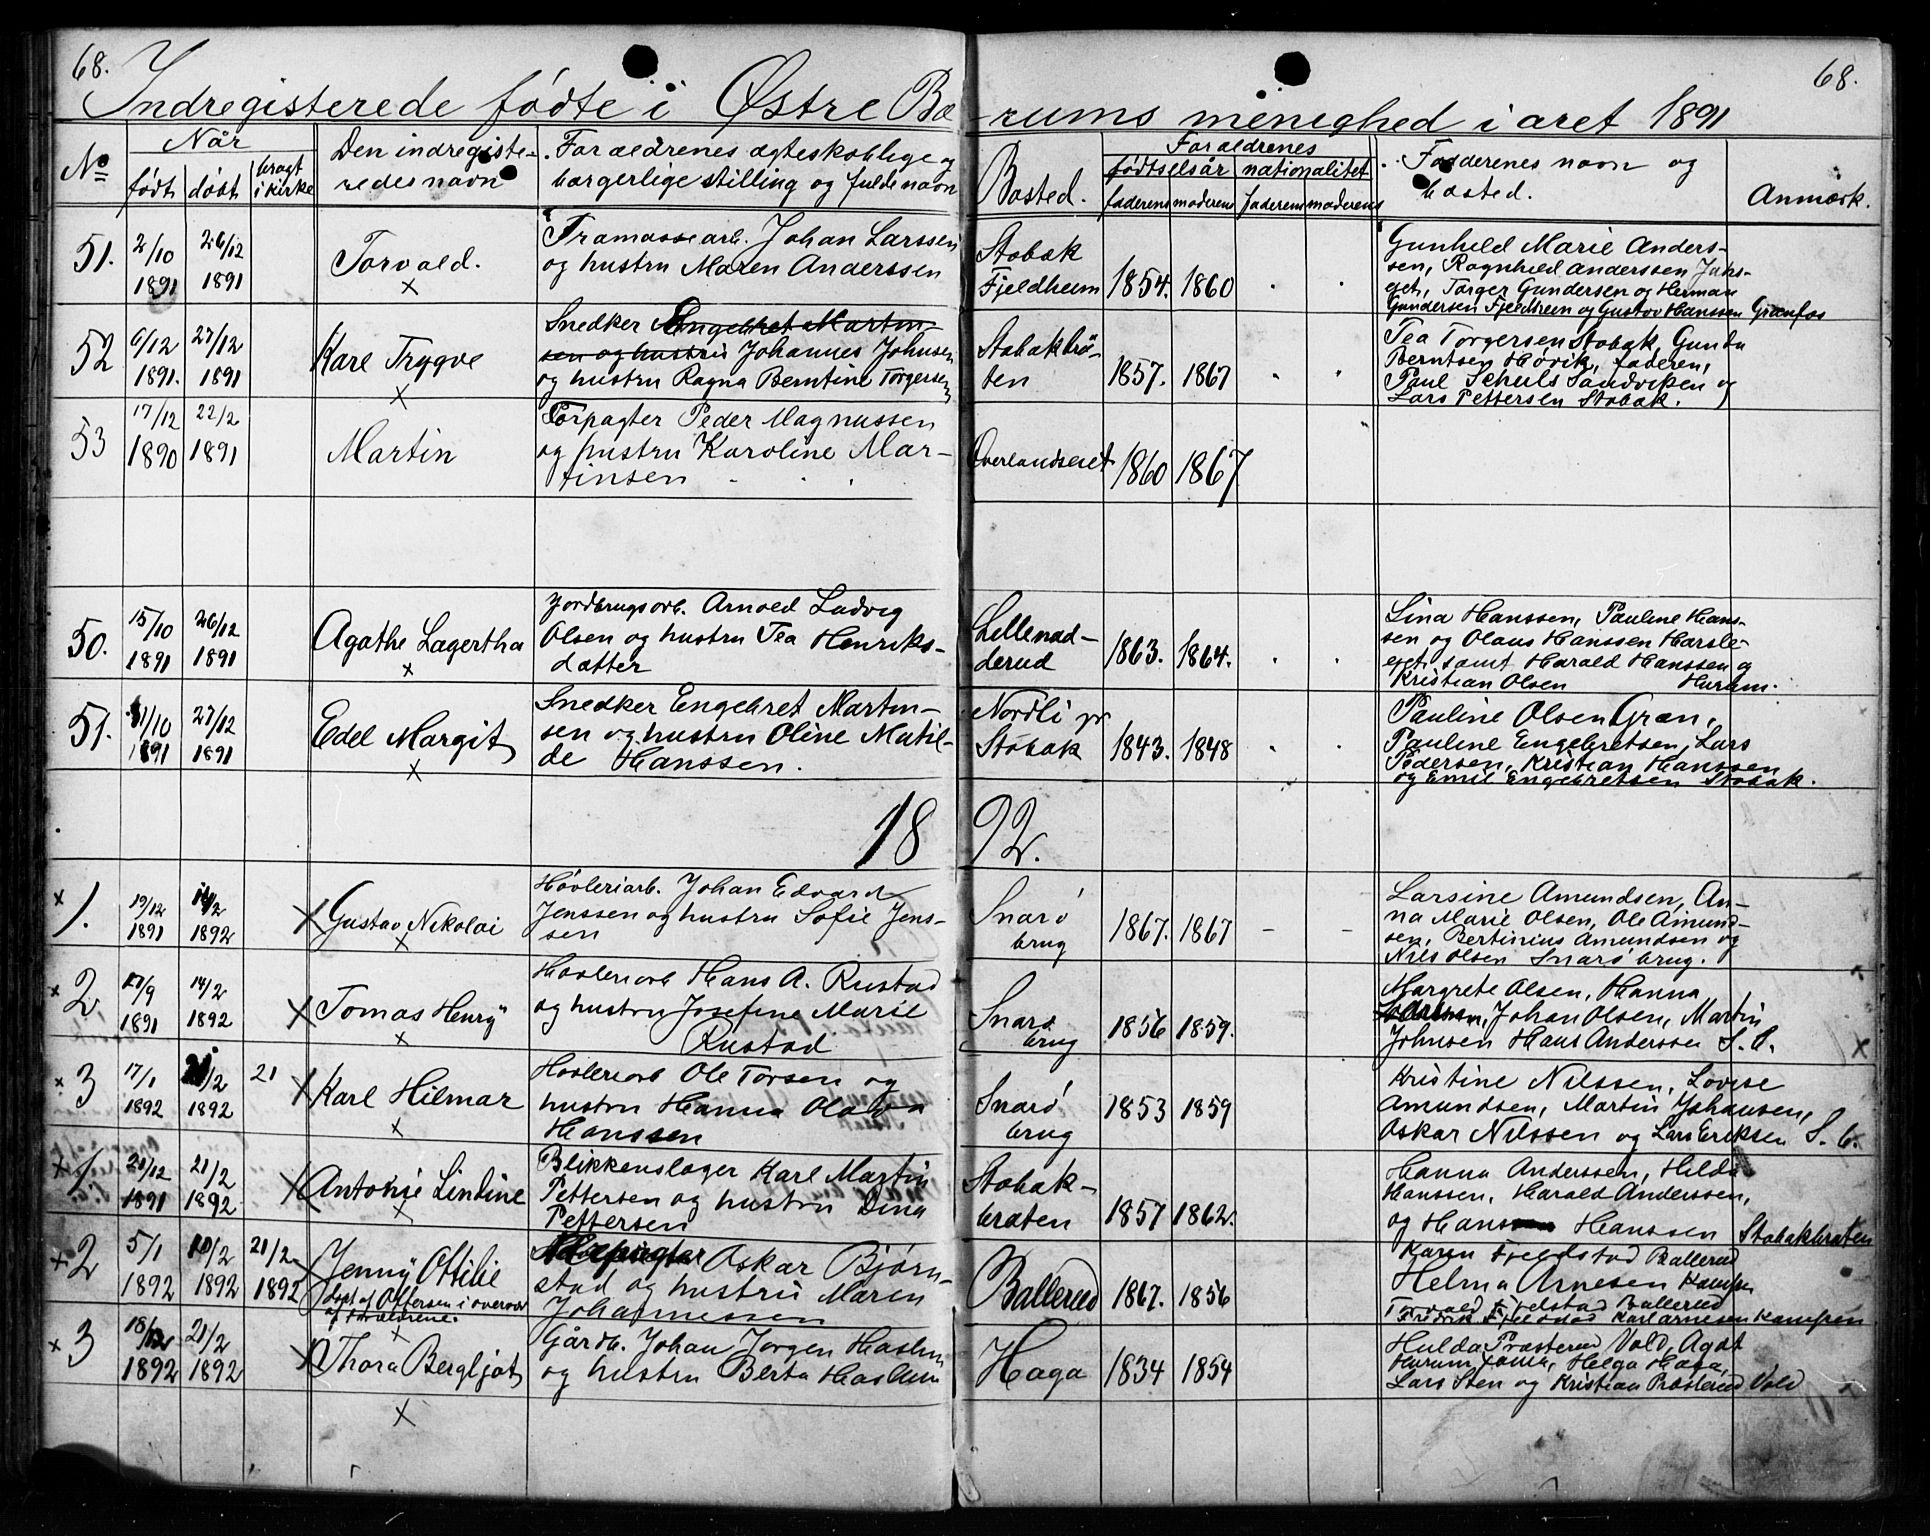 68.
68.
Indregisterede fødte i Østre Bærums menighed i året 1891
No
Når
født
døbt
bragt i kirke
Den indregisteredes navn
Forældrenes ægteskablige og borgerlige stilling og fulde navn
Bosted.
Forældrenes
fødtselsår
nationalitet
faderens
moderens
faderens
moderens
Fadderenes navn og bosted.
Anmærk.
51.
2/10 1891
26/12 1891
Torvald.
Johan Larssen
og hustru Maren Anderssen
Stabæk
Fjeldheim
1854.
1860
Gunhild Marie Anders-
sen, Ragnhild Anderssen
Torger Gundersen og Herman
Gundersen Fjeldheim og Gustav Hanssen Granfos
52
6/12 1891.
27/12 1891
Kare Trygve
Snedker Engebret Martin-
sen og hustru Johannes Johnsen
og hustru Ragna Berntine Torgersen
Stabakbrö-
ten
1857.
1867
Tea Torgersen Stabæk, Gunda
Berntsen Høvik, faderen,
Paul Schuls Sandviken og
Lars Pettersen Stabæk.
53
17/12 1890
22/2 1891
Martin
Forpagter Peder Magnussen
og hustru Karoline Mar-
tinsen
Øverlandseiet
1860
1867
50.
15/10 1891
26/12 1891
Agathe Lagertha
Jordbrugsarb. Arnold Ludvig
Olsen og hustru Tea Henriks-
datter
Lillenad-
derud
1863.
1864.
Lina Hanssen, Pauline Hans-
sen og Olaus Hanssen Harsle-
eget, samt Harald Hanssen og
Kristian Olsen Hurum.
51.
/10 1891
27/12 1891
Edel Margit
Snedker Engebret Martin-
sen og hustru Oline Matil-
de Hanssen.
Nordli pr
Stabæk
1843.
1848
Pauline Olsen Gran,
Pauline Engebretsen, Lars
Pedersen, Kristian Hanssen
og Emil Engebretsen Stabæk.
1892.
x 1.
19/12 1891
/2 1892
x Gustav Nikolai
Høvleriarb. Johan Edvard
Jenssen og hustru Sofie Jens-
sen
Snarö
brug
1867.
1867
Larsine Amundsen, An-
na Marie Olsen, Ole Amund-
sen, Bertinius Amundsen og
Nils Olsen Snarö brug.
x 2
/9 1891
14/2 1892
x Tomas Henry
Høvleriarb Hans A. Rustad
og hustru Josefine Marie
Rustad
Snarö
brug
1856
1859.
Margrete Olsen, Hanna
Johan Olsen, Martin
Johnsen Hans Anderssen S. B.
x 3
17/1 1892
21/2 1892
21
x Karl Hilmar
Høvleriarb Ole Torsen og
hustru Hanna Olava
Hanssen
Snarö
brug
1853
1859
Kristine Nilssen, Lovise
Amundsen, Martin Johansen,
Oskar Nilssen og Lars Eriksen S. b.
x 1
21/12 1891
21/2 1892
x Antonie Lindine
Blikkenslager Karl Martin
Pettersen og hustru Dina
Pettersen
Stabak-
braten
1857
1862.
Hanna Anderssen, Hilda
Hanssen, Harald Anderssen,
og Hans Hanssen Stabakbraten
x 2
5/1 1892
10/2 1892
21/2 1892
Jenny Ottilie
døpt af Offersen i overvær
af forældrene.
Oskar Bjørn-
stad og hustru Maren
Johannessen
Ballerud
1867.
1856
Karen Fjeldstad Ballerud
Helma Arnesen Kampen
Torvald Fjelstad Ballerud
Fredrik Fjeldstad Karl Arnesen Kampen
x 3
18/ 1892
21/2 1892
x Thora Bergljot
Gårdb. Johan Jørgen Haslum
og hustru Berta Haslum
Haga
1834
1854
Hulda Præsterud Vold, Agat
Hurum, Helga Haga,
Lars Sten og Kristian Præsterud Vold